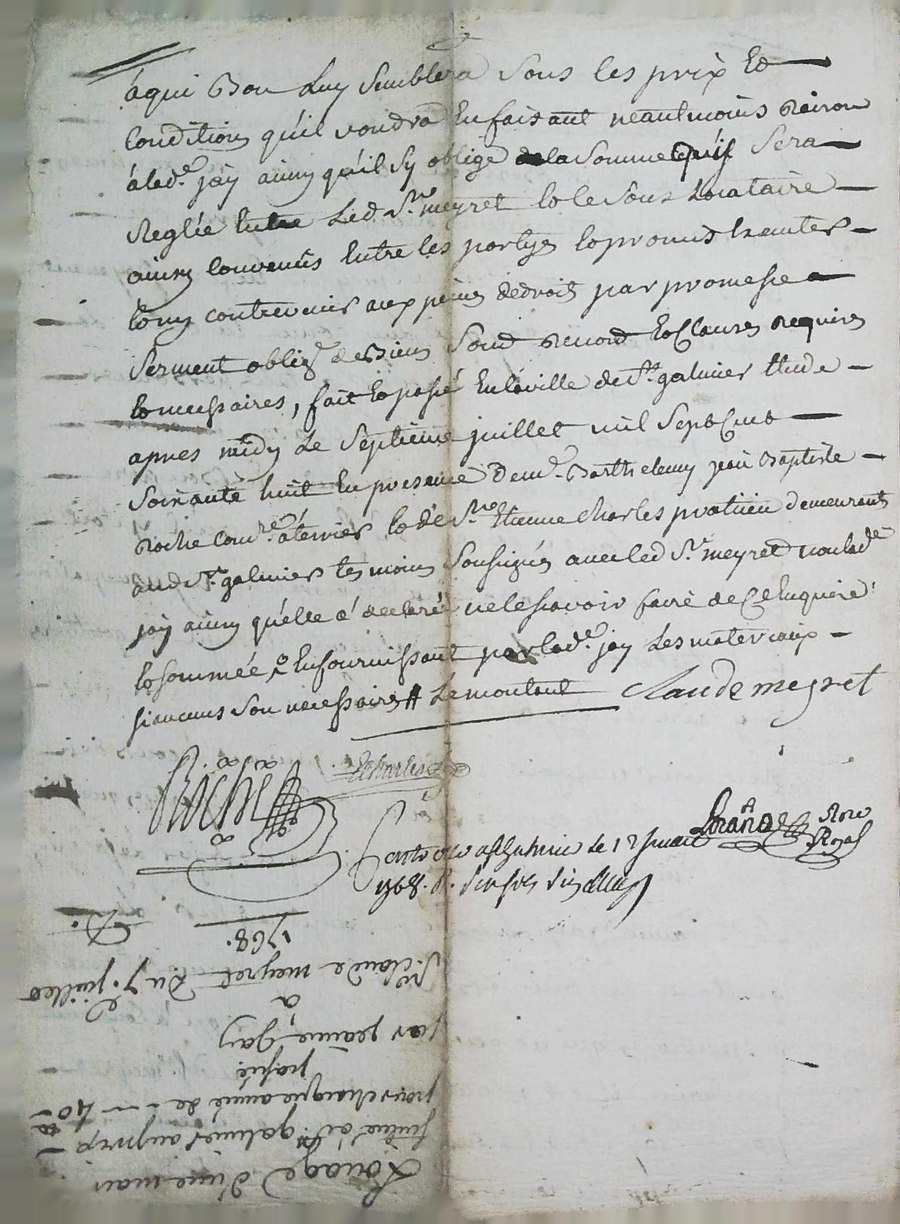 à qui Bon Luy Semblera Sous les prix Et
Conditions qu'il voudra En faisant neantmoins Raison
à lad.e jay ainsy qu'il Sy oblige de la Somme qu'il Sera
Reglée Entre Led. Sr. meyret Et le Sous Locataire
ainsy Convenus Entre les partyes Et promis Executer
Et ny contrevenir aux peines de droit par promesse
Serment oblig.on de Biens Soub.on Renon.on Et Clauses Requises
Et necessaires, fait Et passé En la ville de St. galmier Etude
apres midy Le Septieme juillet mil Sept Cent
Soixante huit En presence de mr. Barthelemy jean Baptiste
Roche Com.re à terrier Et de Sr. Etienne Charles praticien demeurants
aud. St. galmier temoins Soussignés avec led Sr. meyret non lad.e
jay ainsy qu'elle a declaré ne le Scavoir faire de Ce Enquise
Et Sommée, Et En fournissant par lad.e jay Les materiaux
si aucuns Son necessaires Le montant Claude meyret
Roche
Echarles
Nore
Royal
à St. le 17 juillet
1768. R.
Loüage d'une mai
située à St. galmier au prix
pour chaque année de --- 40 tt
passé
par jeanne Jay
à
Sr. Claude meyret Du 7.e juillet
1768.